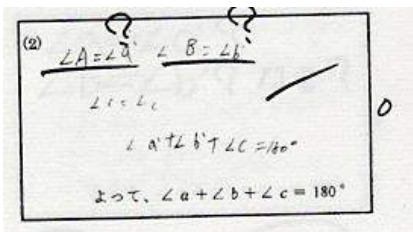 ? ?
(2)
∠A=∠a' ∠B=∠b'
∠c=∠c
∠a'+∠b'+∠C=180°
よって、∠a+∠b+∠c=180°
0